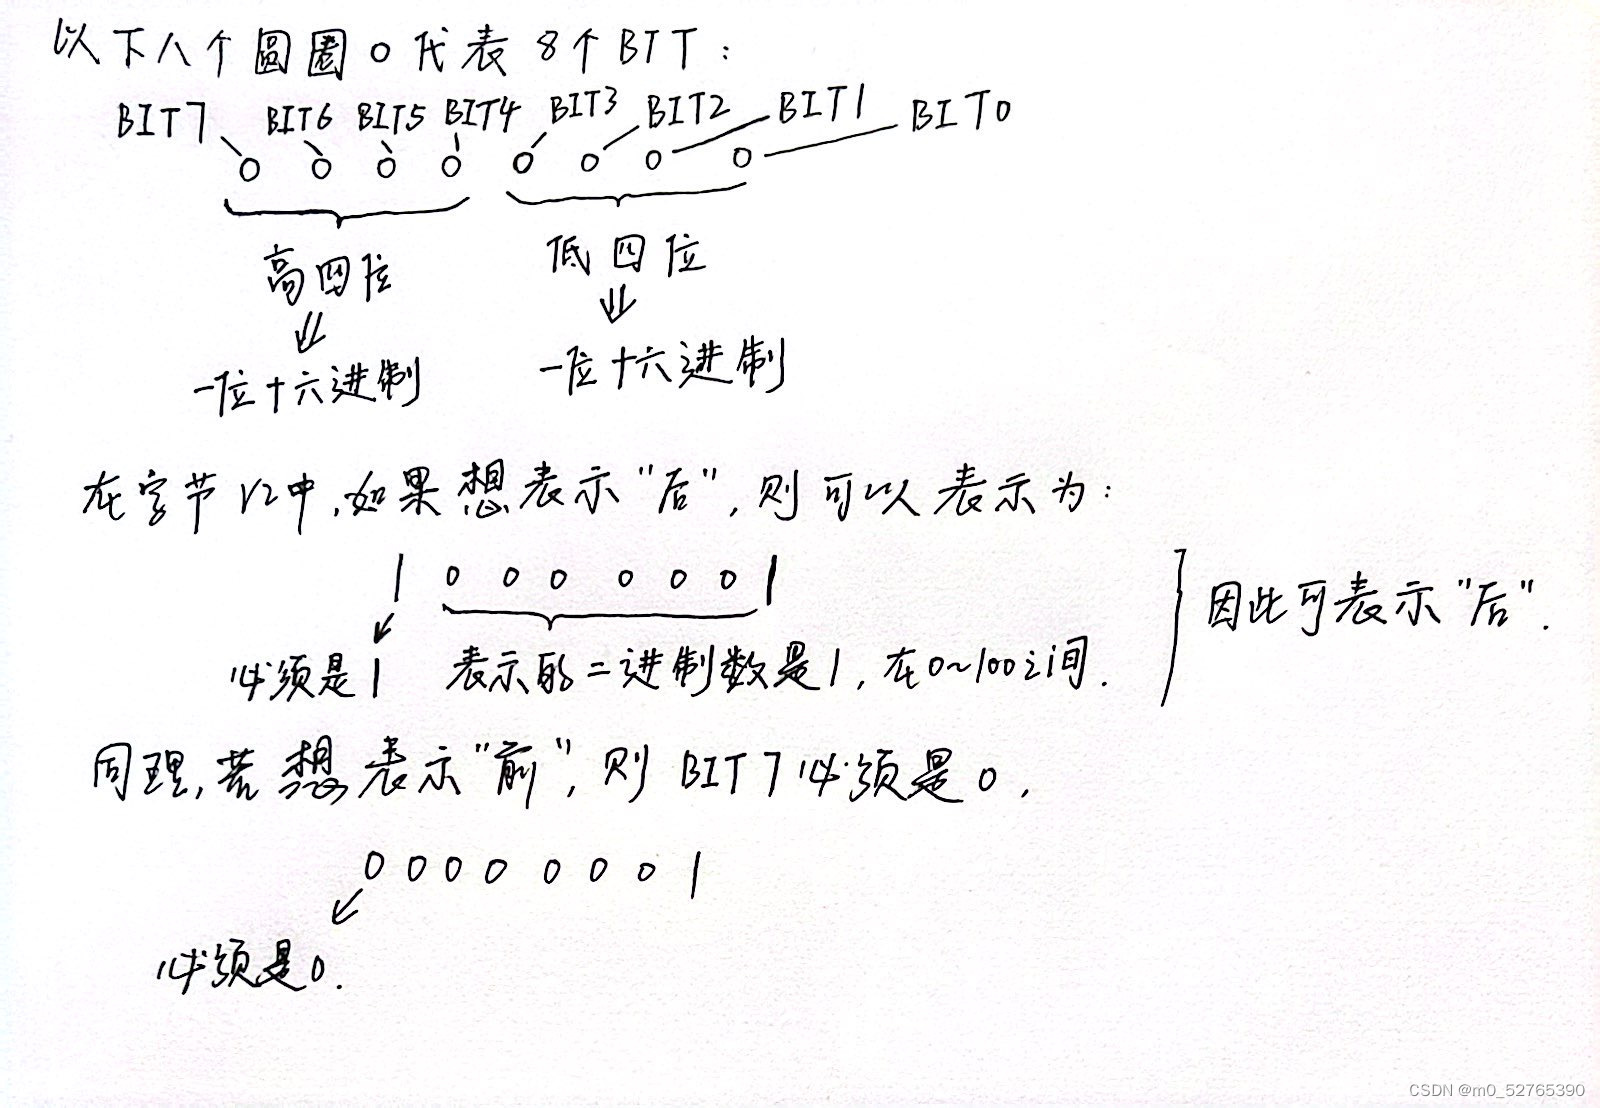 以下八个圆圈O代表8个BIT:
BIT7 BIT6 BIT5 BIT4 BIT3 BIT2 BIT1 BIT0
O O O O O O O O
高四位 低四位
一位十六进制 一位十六进制
在字节V2中,如果想表示"后",则可以表示为:
1 0 0 0 0 0 0 1
必须是1 表示的二进制数是1,在0~100之间. 因此可表示"后".
同理,若想表示"前",则BIT7必须是0,
0 0 0 0 0 0 0 1
必须是0.
CSDN @m0_52765390